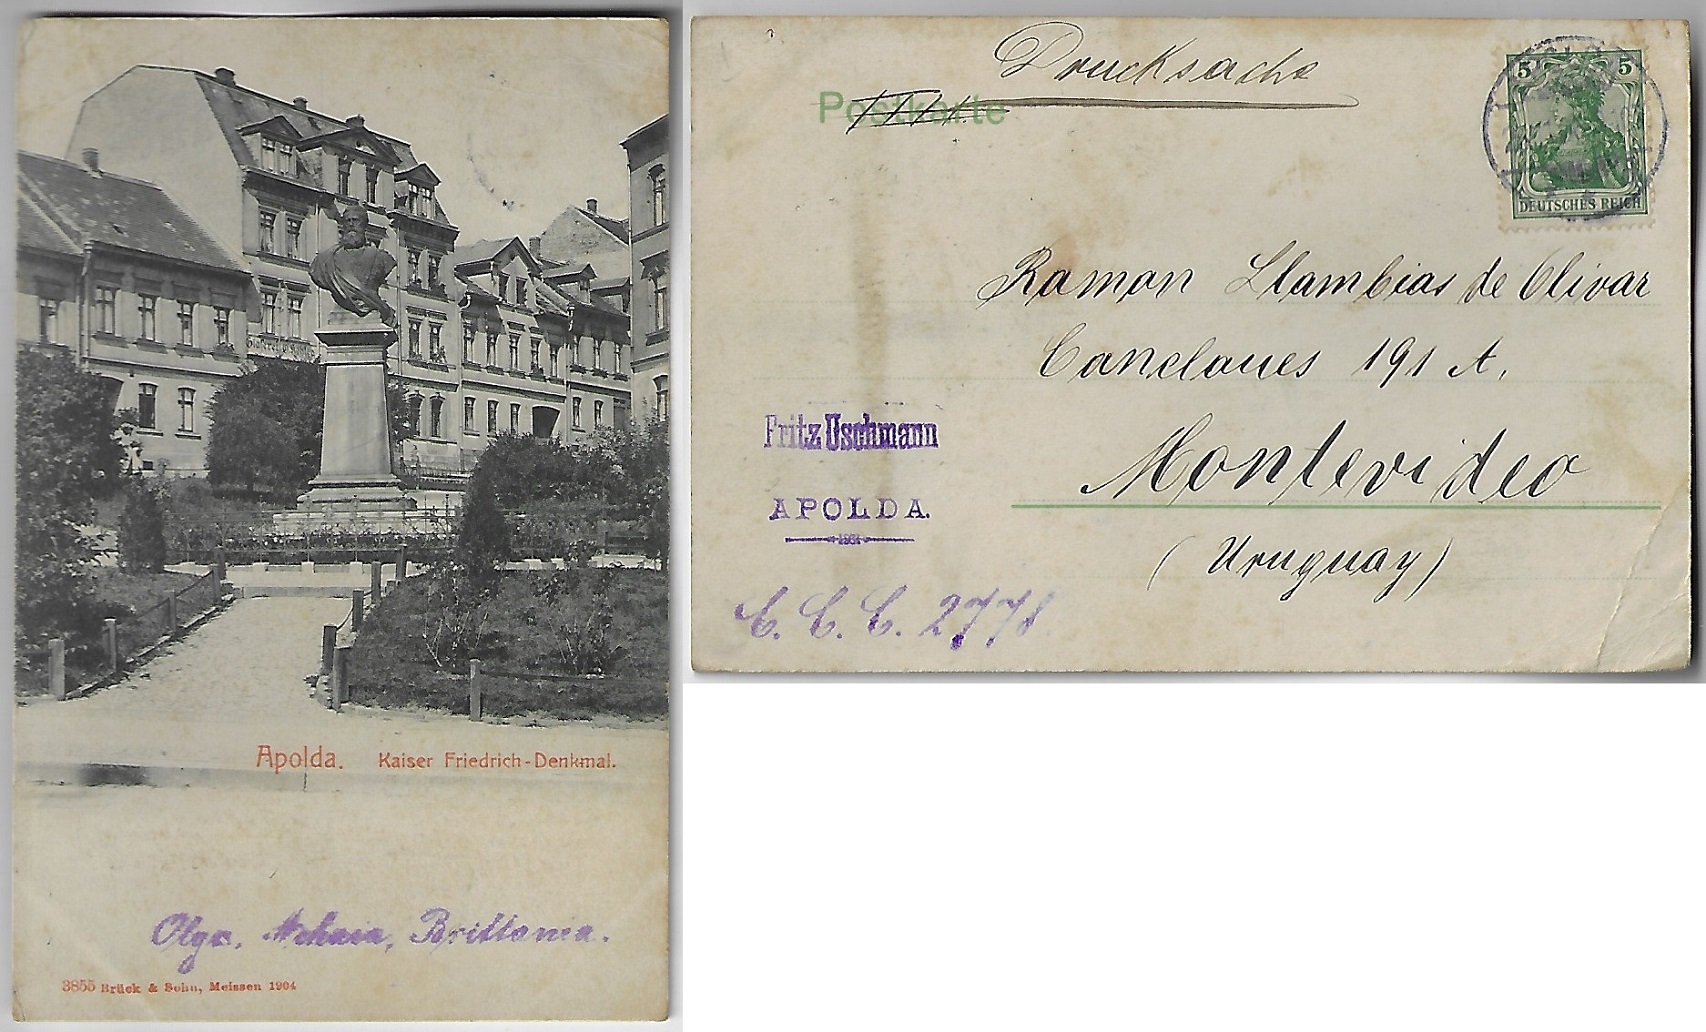 Apolda. Kaiser Friedrich-Denkmal.
Olga, Achaia, Brittania.
3855 Brück & Sohn, Meissen 1904
Drucksache
Postkarte
5 5
DEUTSCHES REICH
Ramon Llambias de Olivar
Canelones 191 A.
Montevideo
(Uruguay)
Fritz Uschmann
APOLDA.
C. C. C. 2778